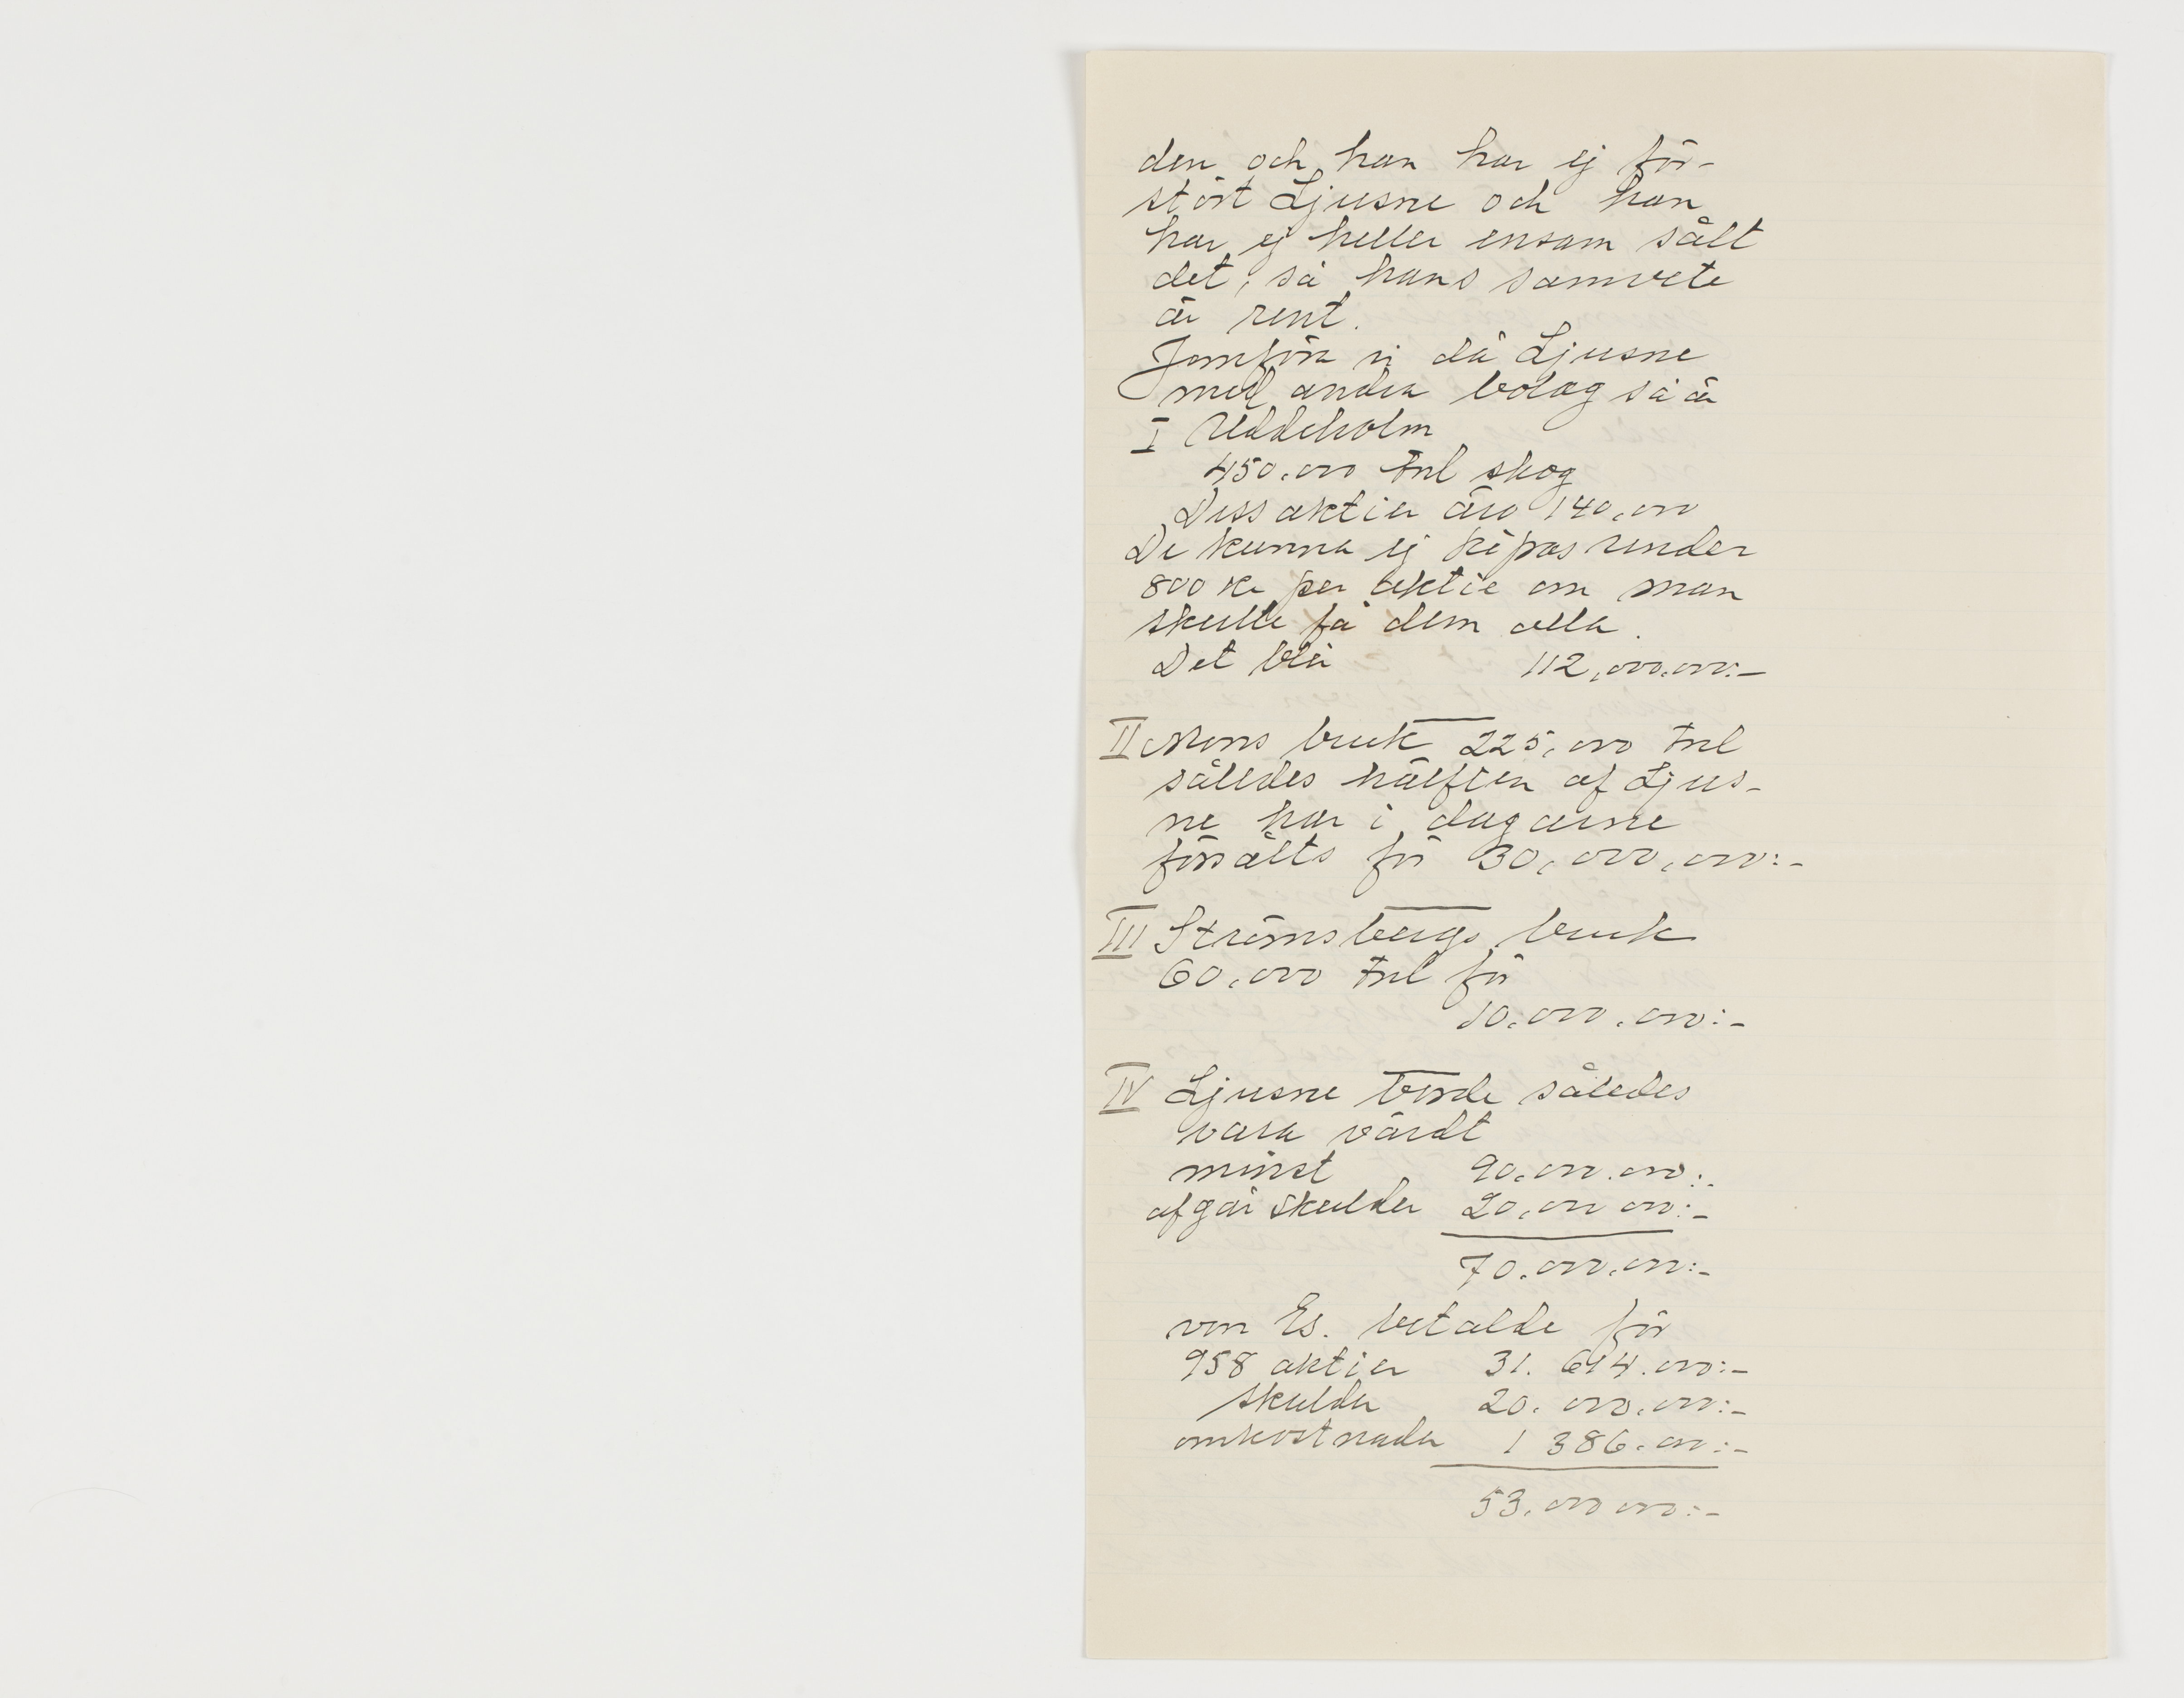 den och han har ej för-
stört Ljusne och han
har ej heller ensam sålt
det, så hans samvete
är rent.
Jamföra vi då Ljusne
med andra bolag så är
I Uddeholm
450,000 tnl skog
Dess aktier äro 140,000
De kunna ej köpas under
800 kr per aktie om man
skulle få dem alla.
Det blir 112,000,000:-
II Mons bruk 225,000 tnl
således hälften af Ljus-
ne har i dagarne
försålts för 30,000,000:-
III Strömsbergs bruk
60,000 tnl för
10,000,000:-
IV Ljusne borde således
vara värdt
minst 90,000.000:-
afgår skulder 20,000 000:-
70,000,000:-
von Es. betalde för
958 aktier 31.614.000:-
skulder 20.000.000:-
omkostnader 1 386.000:-
53,000 000:-